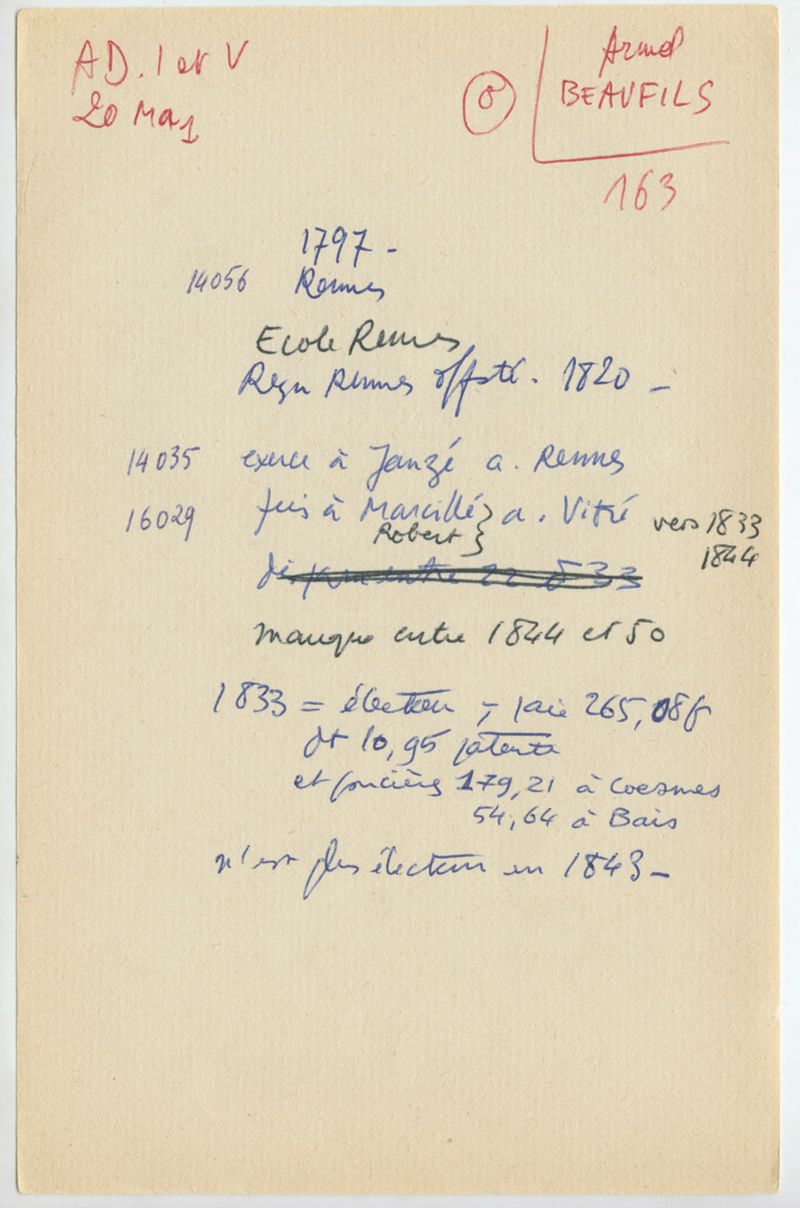 AD. I et V
20 Ma1
Armel
BEAUFILS
163
1797 -
14056 Rennes
Ecole Rennes
Reçu Rennes offsté. 1820 -
14035 exerce à Janzé a. Rennes
16029 puis à Marcillé } a. Vitré vers 1833
Robert 1844
manque entre 1844 et 50
1833 = électeur, paie 265,08f
dt 10,95 patente
et foncière 179,21 à Coesmes
54,64 à Bais
n'est plus électeur en 1843 -